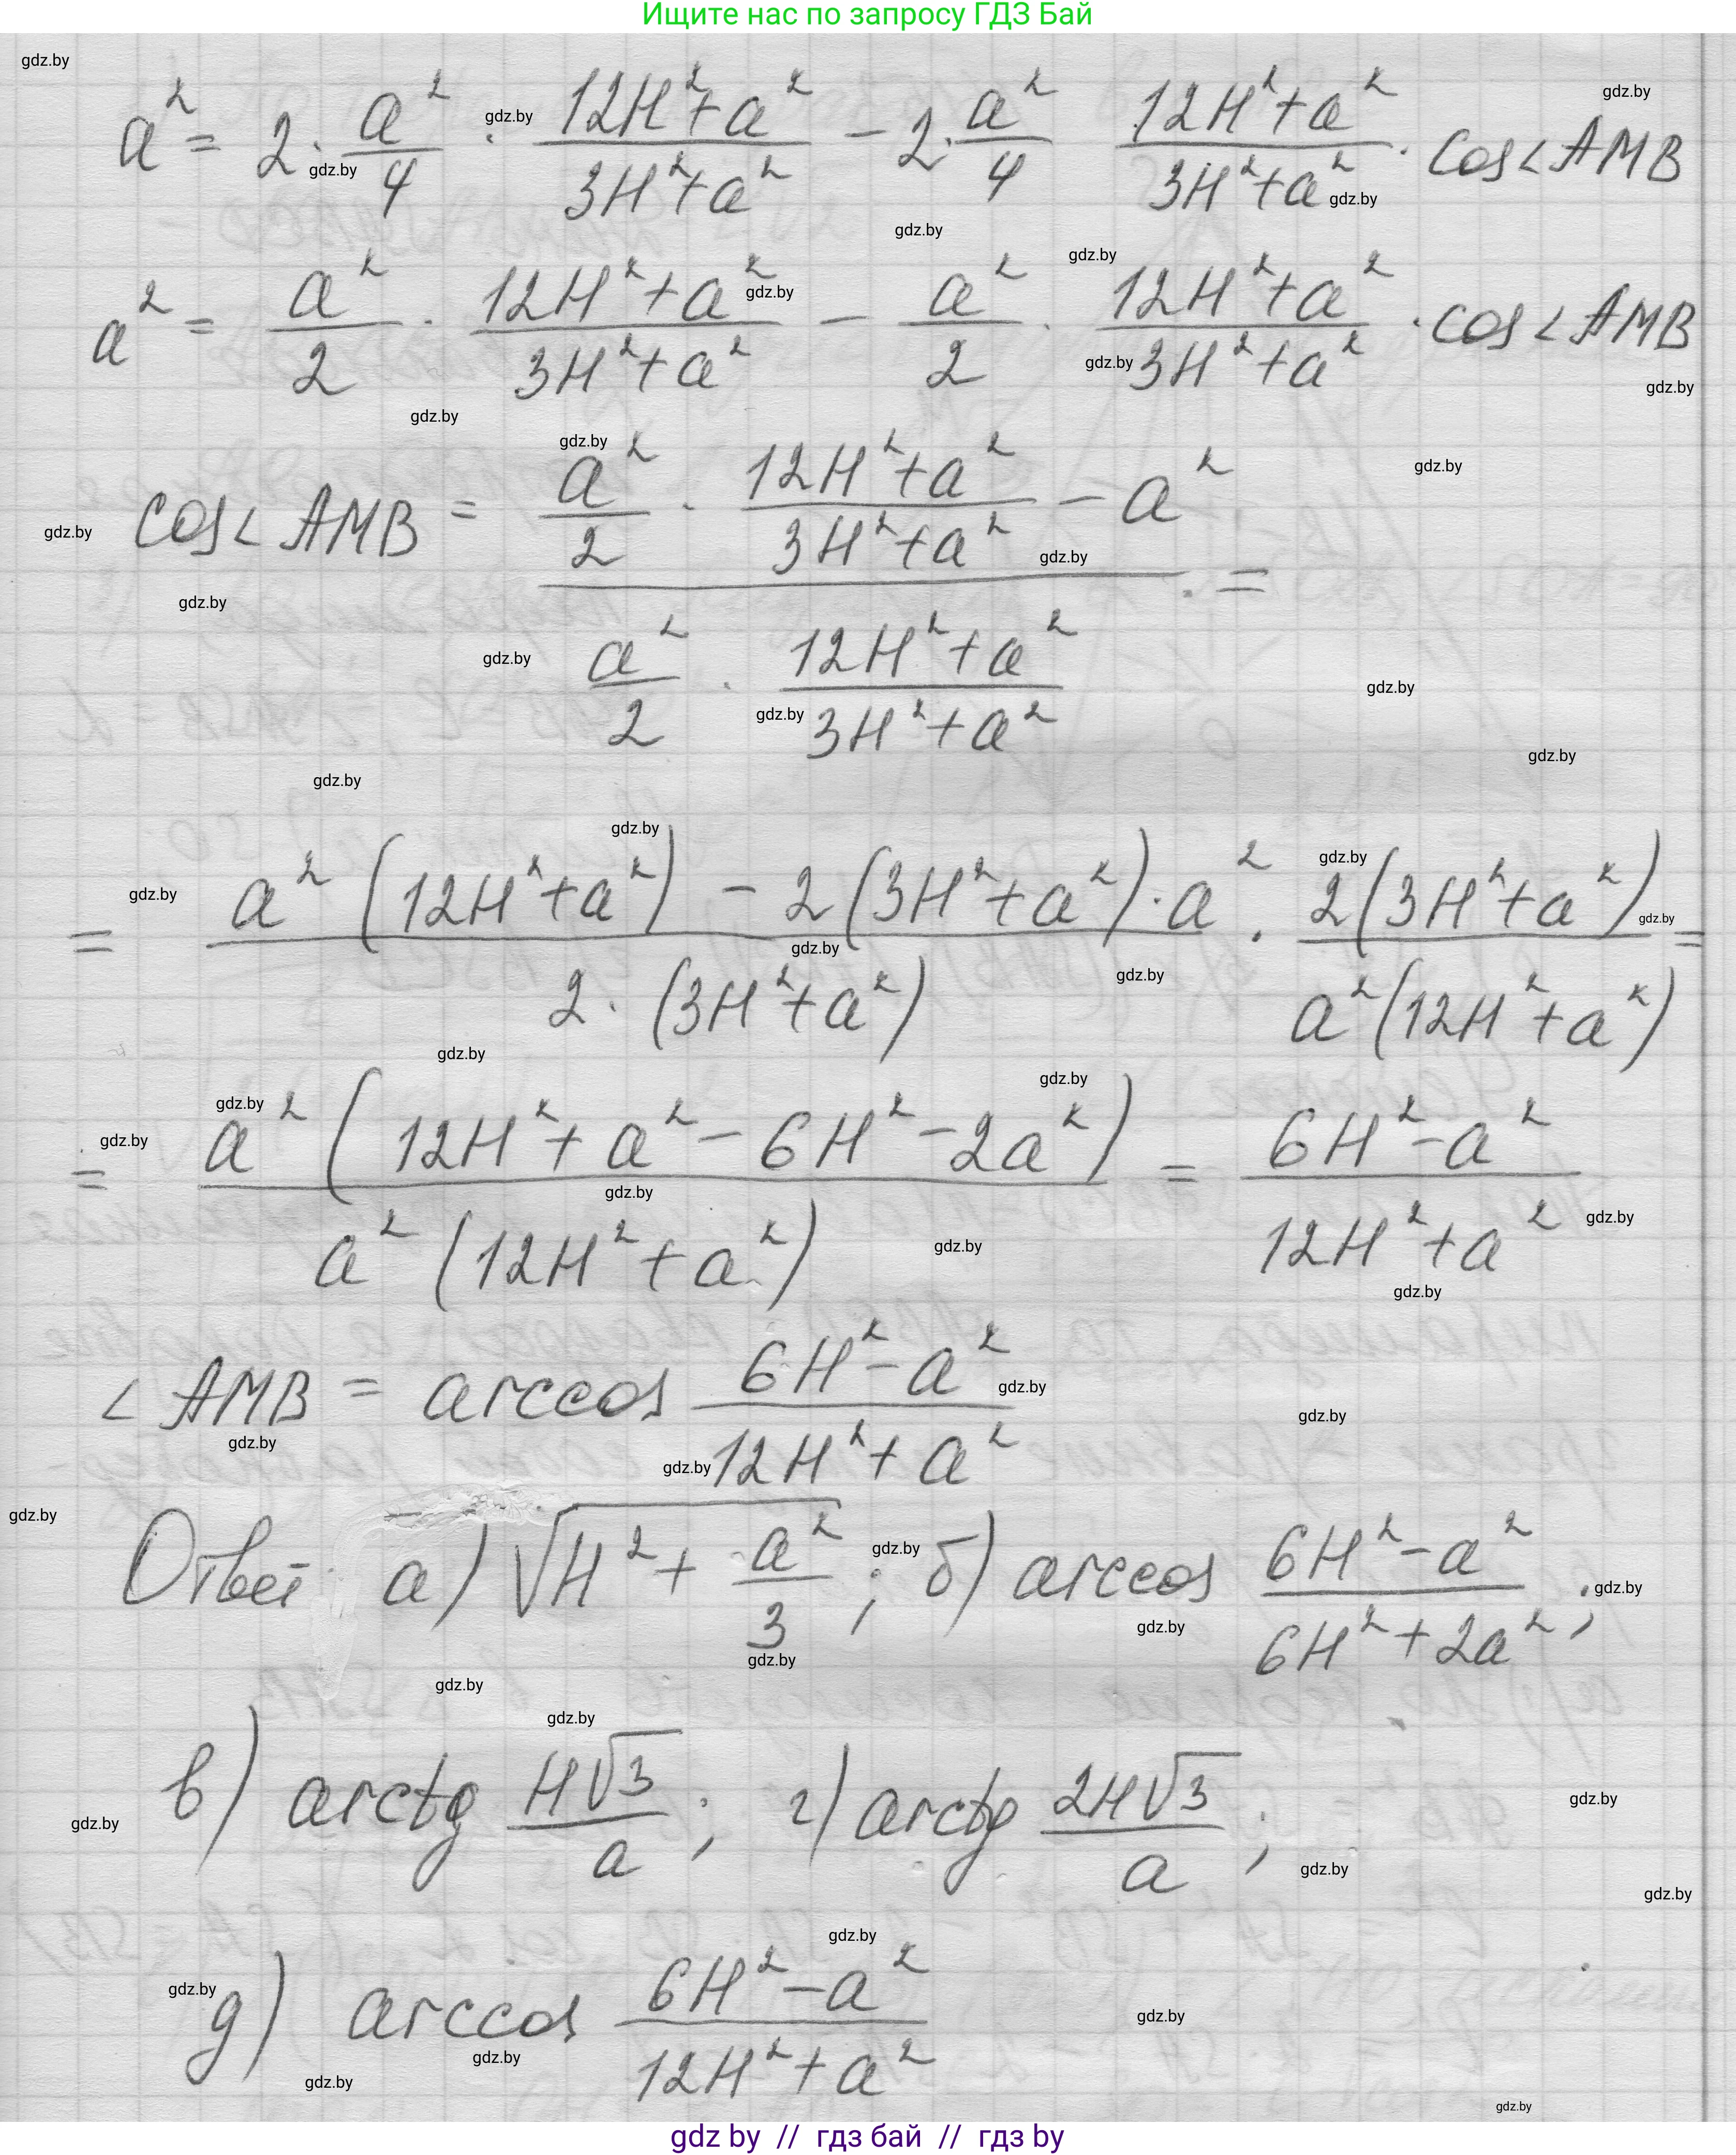 Ищите нас по запросу ГДЗ Бай
a² = 2 · a²/4 · (12H²+a²)/(3H²+a²) − 2 · a²/4 (12H²+a²)/(3H²+a²) · cos∠AMB
a² = a²/2 · (12H²+a²)/(3H²+a²) − a²/2 · (12H²+a²)/(3H²+a²) · cos∠AMB
cos∠AMB = (a²/2 · (12H²+a²)/(3H²+a²) − a²) / (a²/2 · (12H²+a²)/(3H²+a²)) =
= (a²(12H²+a²) − 2(3H²+a²)·a²)/(2·(3H²+a²)) · 2(3H²+a²)/(a²(12H²+a²)) =
= a²(12H²+a²−6H²−2a²)/(a²(12H²+a²)) = (6H²−a²)/(12H²+a²)
∠AMB = arccos (6H²−a²)/(12H²+a²)
Ответ а) √(H² + a²/3) ; б) arccos (6H²−a²)/(6H²+2a²) ;
в) arctg H√3/a ; г) arctg 2H√3/a ;
д) arccos (6H²−a²)/(12H²+a²)
gdz by // гдз бай // гдз by